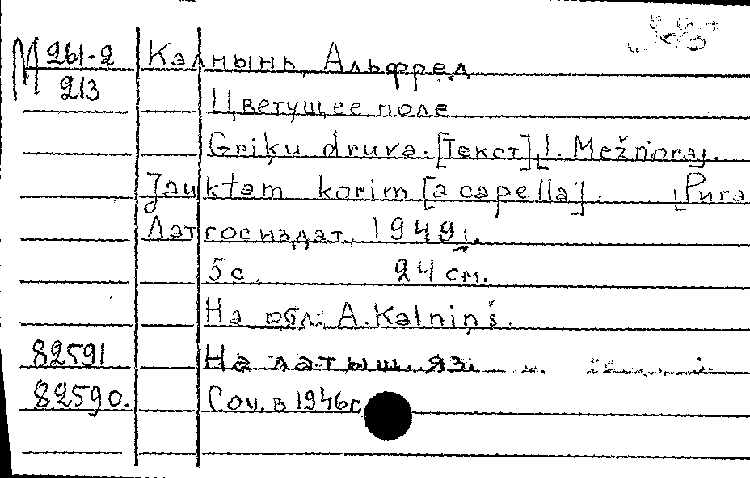 М 261-2 Калнынь, Альфред
213
Цветущее поле
Griķu druva. [Текст] J. Mežnoraj.
Jauktam korim [a capella]. [Рига
Латгосиздат, 1949].
5 с. 24 см.
На обл.: A. Kalniņš.
82591 На латыш. яз.
82590. Соч. в 1946г.